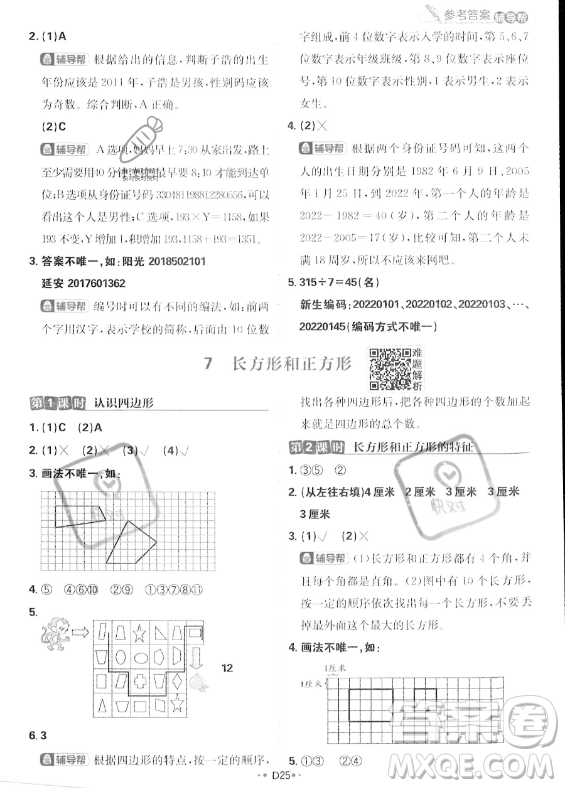 参考答案 辅导帮
2. (1)A
辅导帮 根据给出的信息，判断子浩的出生
年份应该是2011年，子浩是男孩，性别码应该
为奇数。综合判断，A选项正确。
(2)C
辅导帮 A选项，妈妈早上7:30从家出发，路上
至少需要40分钟，最早8:10才能到达工作单
位；B选项从身份证号码330481198812280556，可以
看出这个人是男性；C选项，193×Y=1158，如果
193不变，Y增加1，那么积会增加193。
3. 答案不唯一，如：阳光 2018502101
延安 2017601362
辅导帮 编号时可以有不同的编法，如前两
个字用汉字，表示学校的简称，后面10位数
字组成，前4位数字表示入学的时间，第5、6、7
位数字表示年级班级，第8、9位数字表示座位
号。最后一位数字表示性别，1表示男生，2表示
女生。
4. (2)×
辅导帮 根据两个身份证号码可知，这两个
人的出生日期分别是1982年6月9日、2005
年1月25日，到2022年，第一个人的年龄是
2022-1982=40(岁)，第二个人的年龄是
2022-2005=17(岁)，所以第二个人未
满18周岁，所以所示信息不正确。
5. 315÷7=45(名)
新生编码：20220101、20220102、20220103、…、
20220145(编码方式不唯一)
7 长方形和正方形
难题解析
第1课时 认识四边形
1. (1)C (2)A
2. (1)× (2)× (3)√ (4)√
3. 画法不唯一，如：
4. ⑤ ④⑥⑩ ②⑨ ①⑧
5.
12
6. 3
辅导帮 根据四边形的特点，按一定的顺序，
找出各种四边形后，把各种四边形的个数加起
来就是四边形的总个数。
第2课时 长方形和正方形的特征
1. ③⑤ ②
2. (从左往右填)4厘米 4厘米 3厘米
3厘米
3. (1)√ (2)×
辅导帮 (1)长方形和正方形都有4个角，并
且每个角都是直角。(2)图中有10个长方形，
按一定的顺序依次找出来即可，注意不要丢
掉最外面这个最大的长方形。
4. 画法不唯一，如：
1厘米
1厘米
5. ①③ ②④
D25
快对
快对
答案圈
MXQE.COM